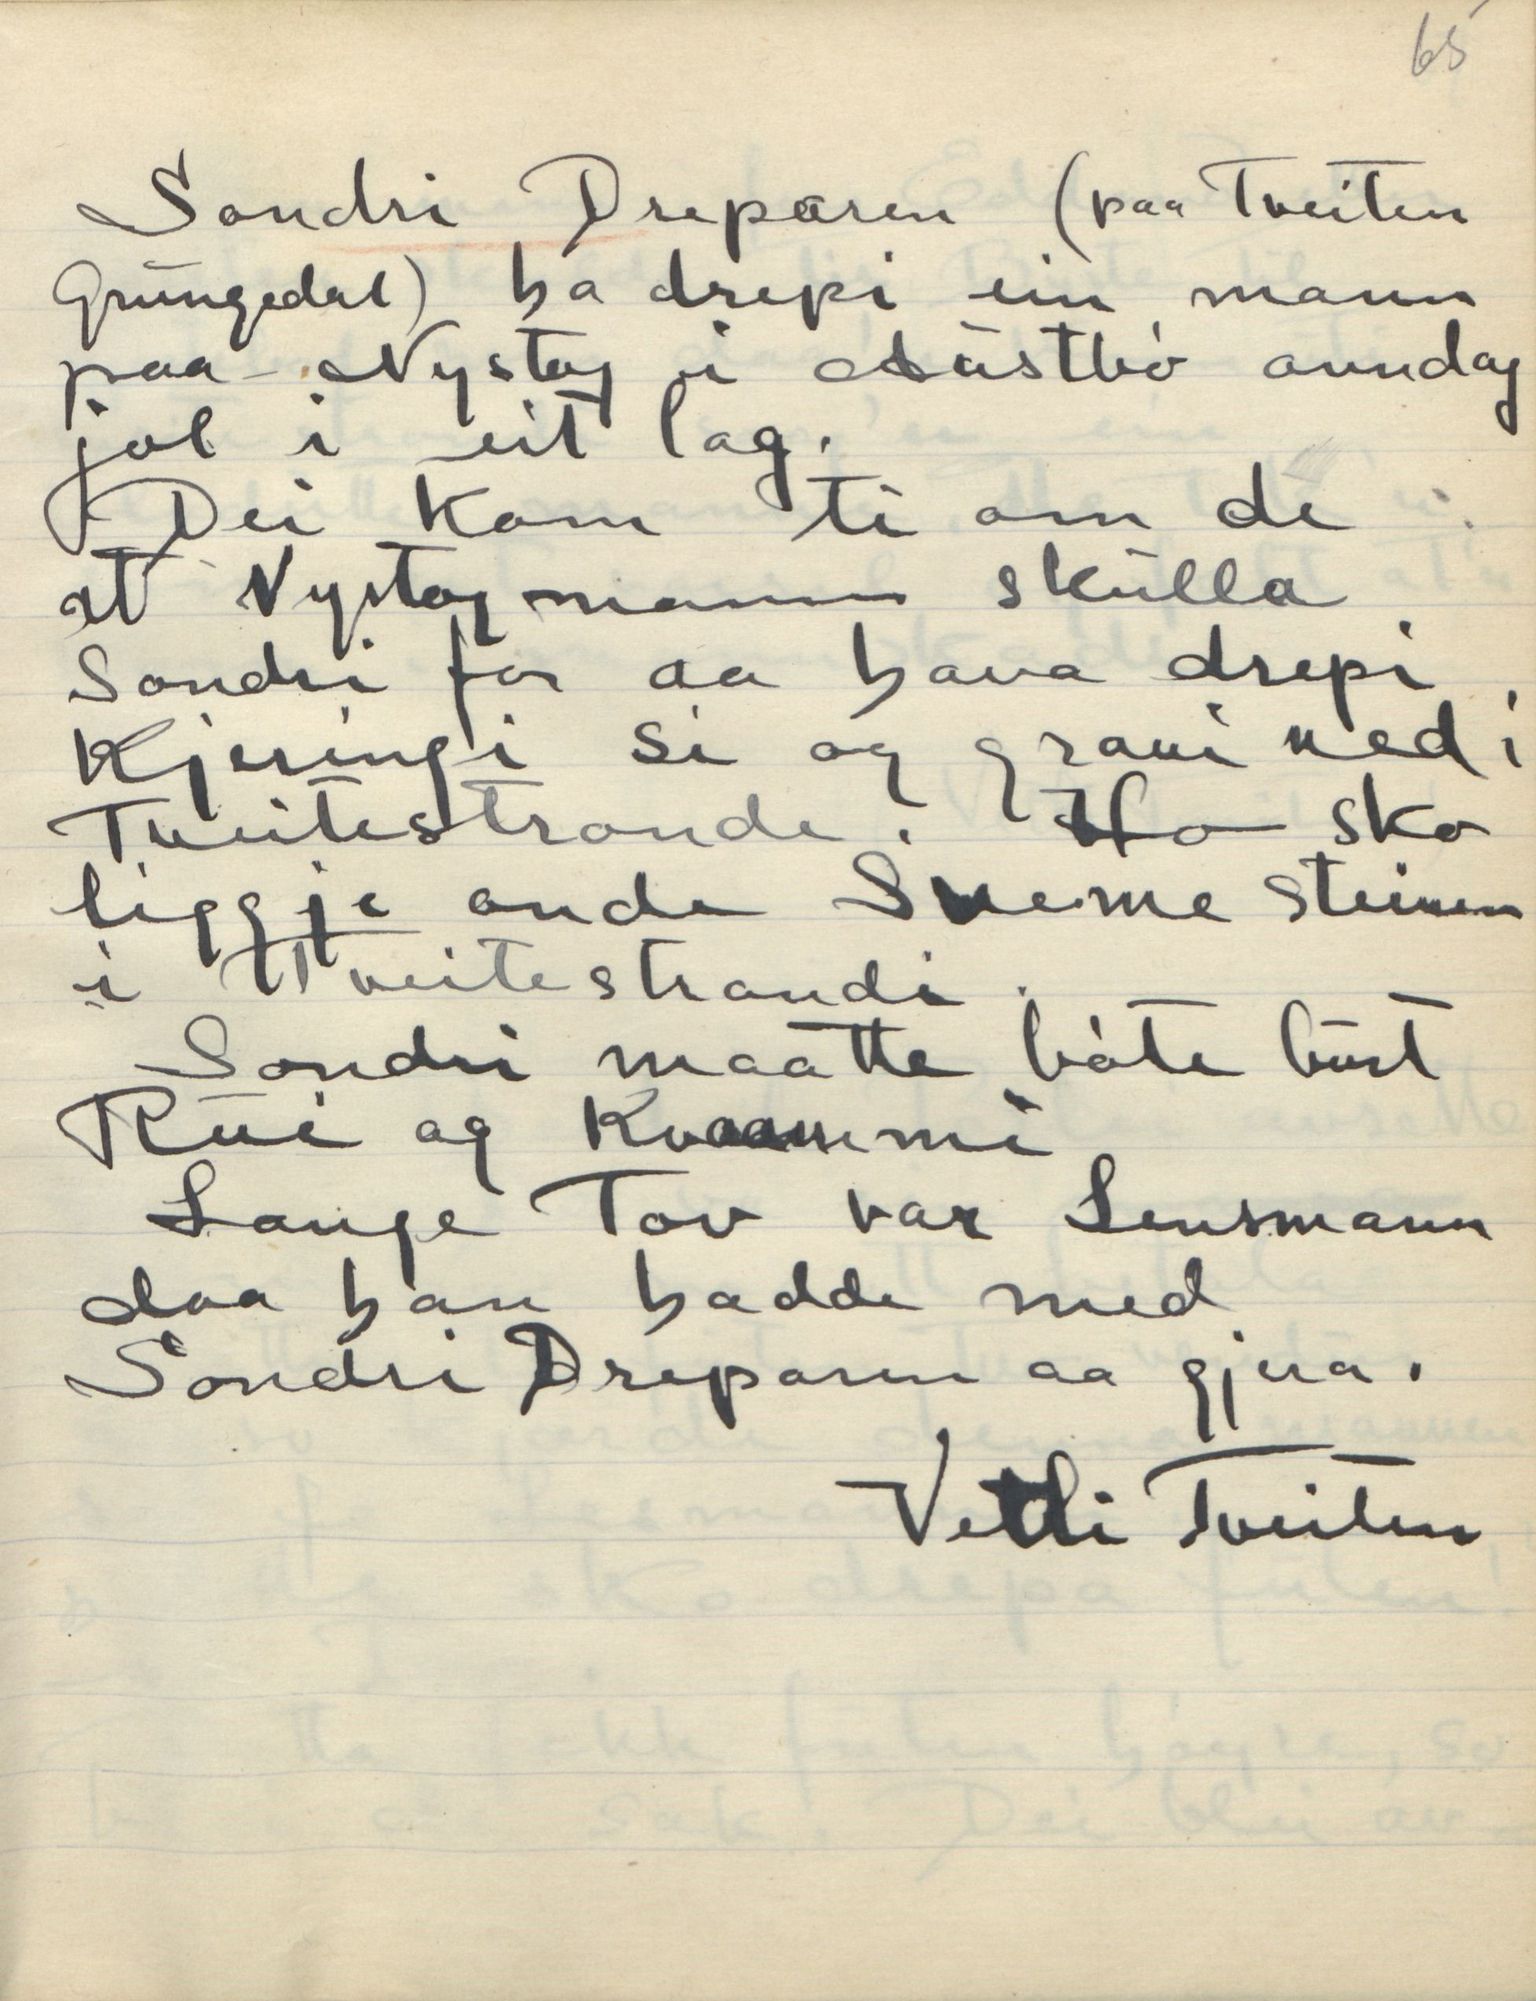 65
Sondri Dreparen (paa Tveiten
Grungedal) ha drepi ein mann
paa Nystog i Austbó anndag
jol i eit lag.
Dei kom ti om de
at Nystogmann skulla
Sondri for aa hava drepi
Kjeringi si og gravi ned i
Tveitestronde. Ho sko
liggje onde Sveme steinen
i Tveitestrondi.
Sondri maatte bóte burt
Rui og Kvaammi
Lange Tov var Lensmann
daa han hadde med
Sondri Dreparen aa gjera.
Vetli Tveiten